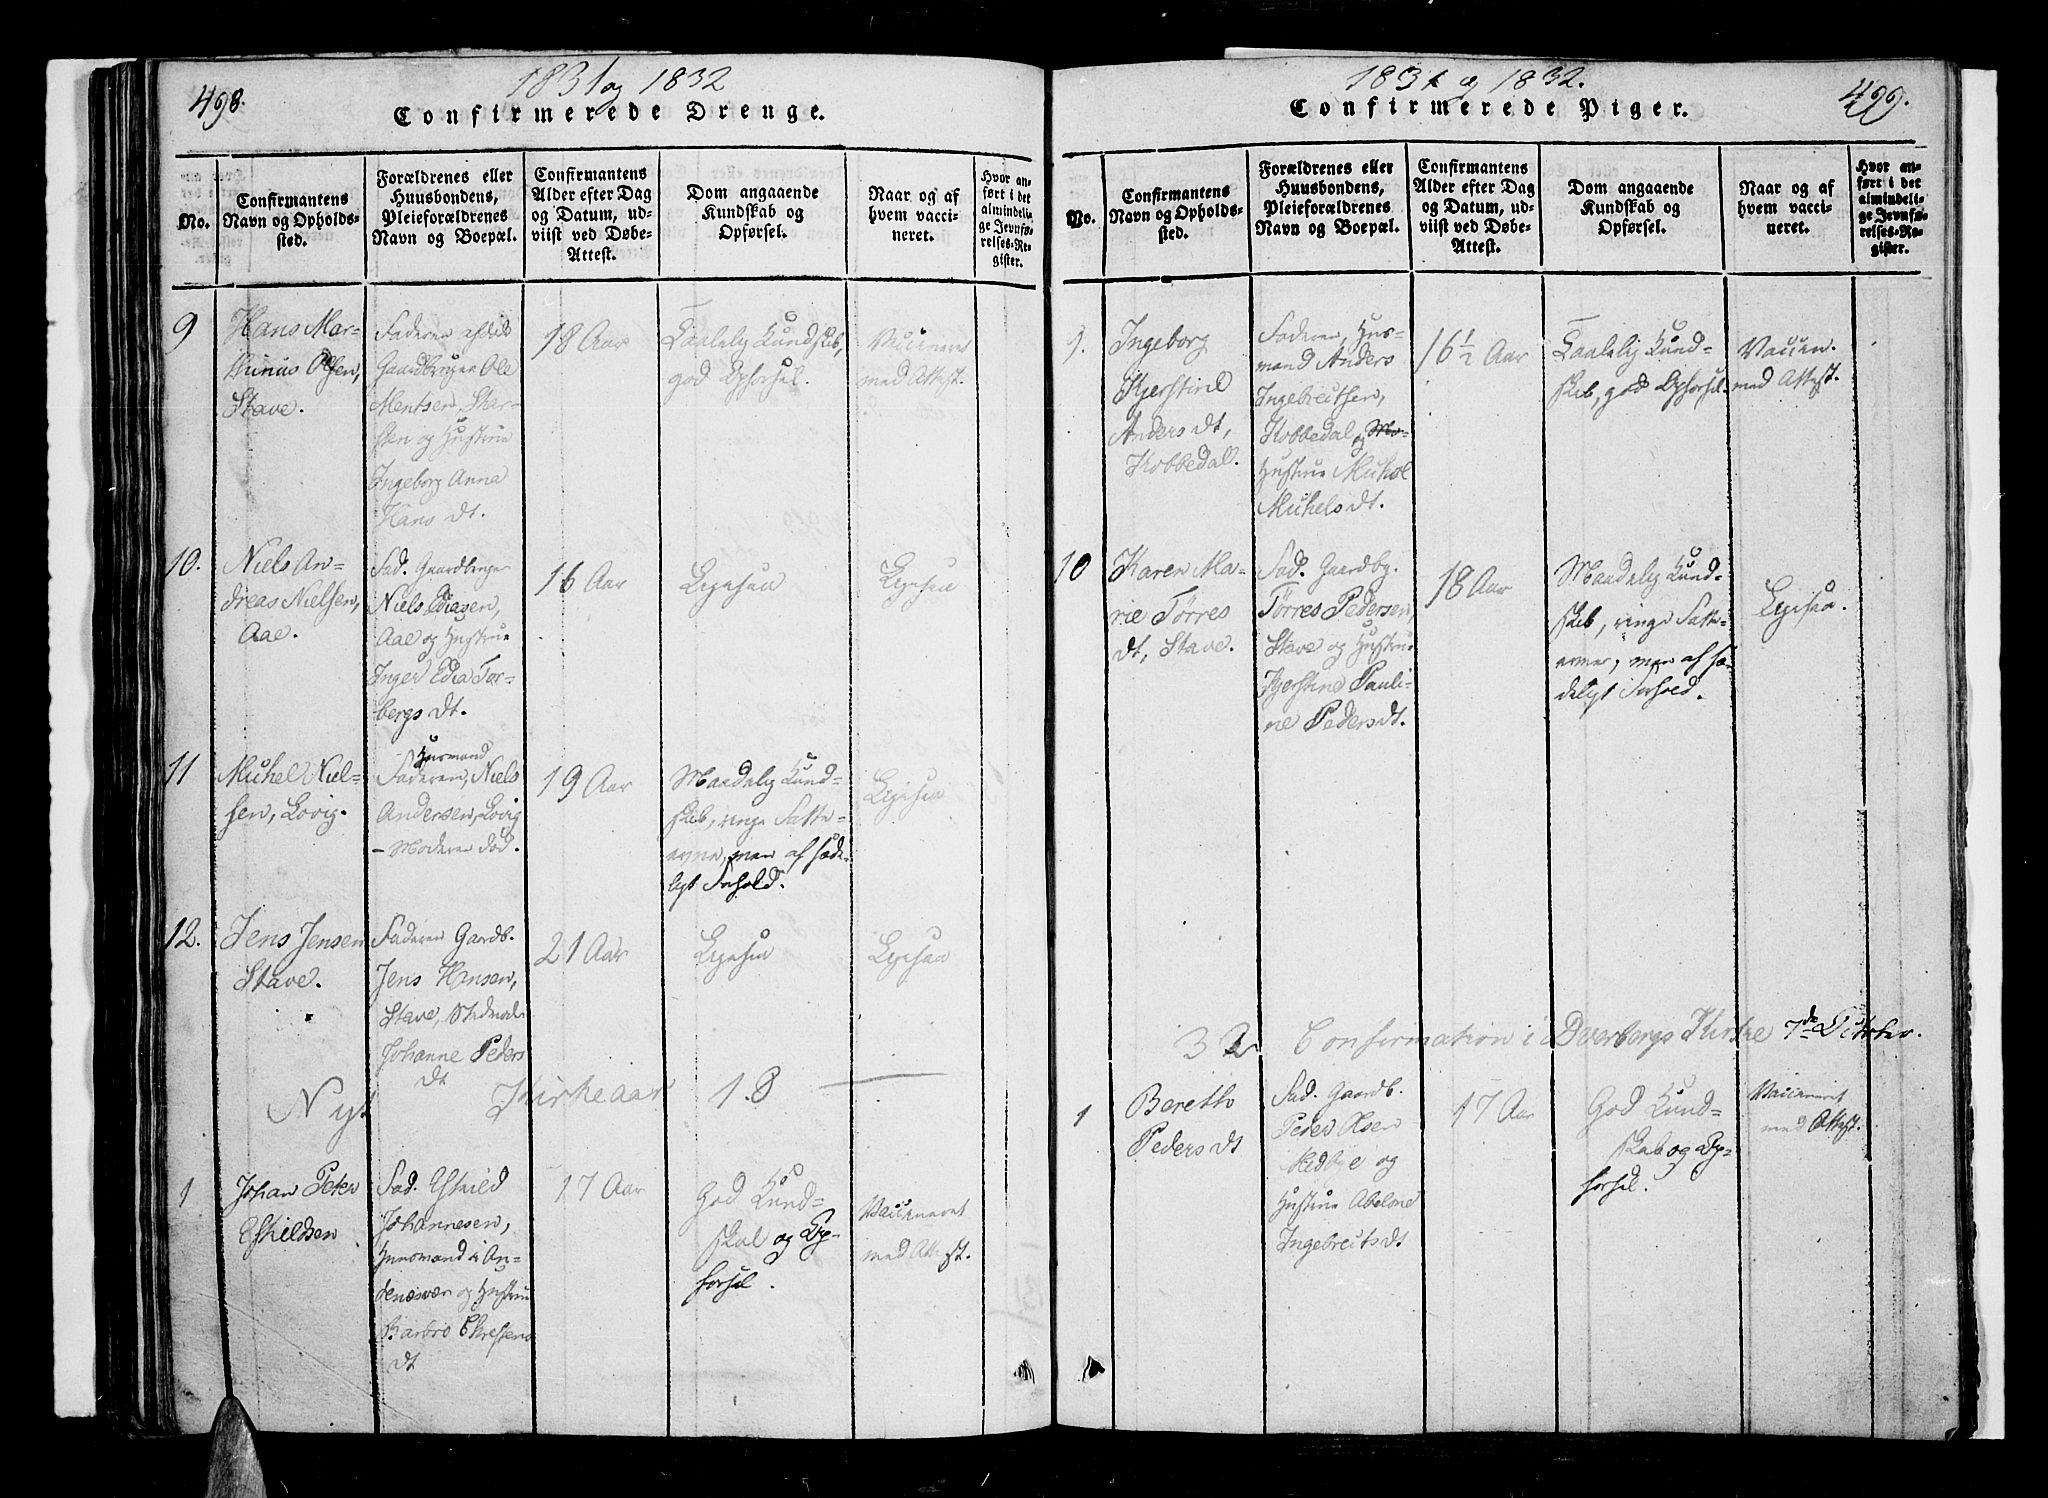 498.
1831 og 1832
Confirmerede Drenge.
No.
Confirmantens
Navn og Opholds-
sted.
Forældrenes eller
Huusbondens,
Pleieforældrenes
Navn og Boepæl.
Confirmantens
Alder efter Dag
og Datum, ud-
viist ved Døbe-
Attest.
Dom angaaende
Kundskab og
Opførsel.
Naar og af
hvem vacci-
neret.
Hvor an-
ført i det
almindeli-
ge Jevnfø-
relses-Re-
gister.
9
Hans Mar-
thinus Olsen,
Stave.
Faderen afdøde
Gaardbruger Ole
Mentsen, Skar-
sten og Hustrue
Ingeborg Anna
Hans dt.
18 Aar
Taalelig Kundskab,
god Opførsel.
Vaccineret
med Attest.
10.
Niels An-
dreas Nielsen,
Aae.
Fad. Gaardbruger
Niels Ediasen,
Aae og Hustrue
Inger Edia Tor-
bergs dt.
16 Aar
Ligesaa
Ligesaa
11
Michel Niel-
sen, Lovig.
Huusmand
Faderen, Niels
Andersen, Lovig
- Moderen død.
19 Aar
Maadelig Kund-
skab, ringe Fatte-
evne, men af sæde-
ligt Forhold.
Ligesaa
12.
Jens Jensen
Stave.
Faderen Gaardb.
Jens Hansen,
Stave, Stedmoder
Johanne Peders
dt
21 Aar
Ligesaa
Ligesaa
Nyt Kirkeaar 18
1
Johan Peter
Eskildsen
Fad. Eskild
Johannesen,
Huusmand i An-
denæsvær og Hustrue
Barbro Christens
dt
17 Aar
God Kund-
skab og Op-
førsel.
Vaccineret
med Attest.
499.
1831 og 1832.
Confirmerede Piger.
No.
Confirmantens
Navn og Opholds-
sted.
Forældrenes eller
Huusbondens,
Pleieforældrenes
Navn og Boepæl.
Confirmantens
Alder efter Dag
og Datum, ud-
viist ved Døbe-
Attest.
Dom angaaende
Kundskab og
Opførsel.
Naar og af
hvem vacci-
neret.
Hvor an-
ført i det
almindeli-
ge Jevnfø-
relses-Re-
gister.
9.
Ingeborg
Kjerstine
Anders dt,
Kobbedal.
Faderen, Huus-
mand Anders
Ingebreitsen,
Kobbedal og Mo-
Hustrue Michol
Michels dt.
16 1/2 Aar
Taalelig Kund-
skab, god Opførsel.
Vaccin.
med Attest.
10
Karen Ma-
rie Tørres
dt, Stave.
Fad. Gaardbg.
Tørres Pedersen,
Stave og Hustrue
Kjerstine Pauli-
ne Peders dt.
18 Aar
Maadelig Kund-
skab, ringe Fatte-
evner, men af sæ-
deligt Forhold.
Ligesaa.
32 Confirmation i Dverbergs Kirke 7de October.
1
Berethe
Peders dt
Fad. Gaardb.
Peder Olsen
Medbye og
Hustrue Abelone
Ingebreits dt
17 Aar
God Kund-
skab og Op-
førsel.
Vaccineret
med Attest.